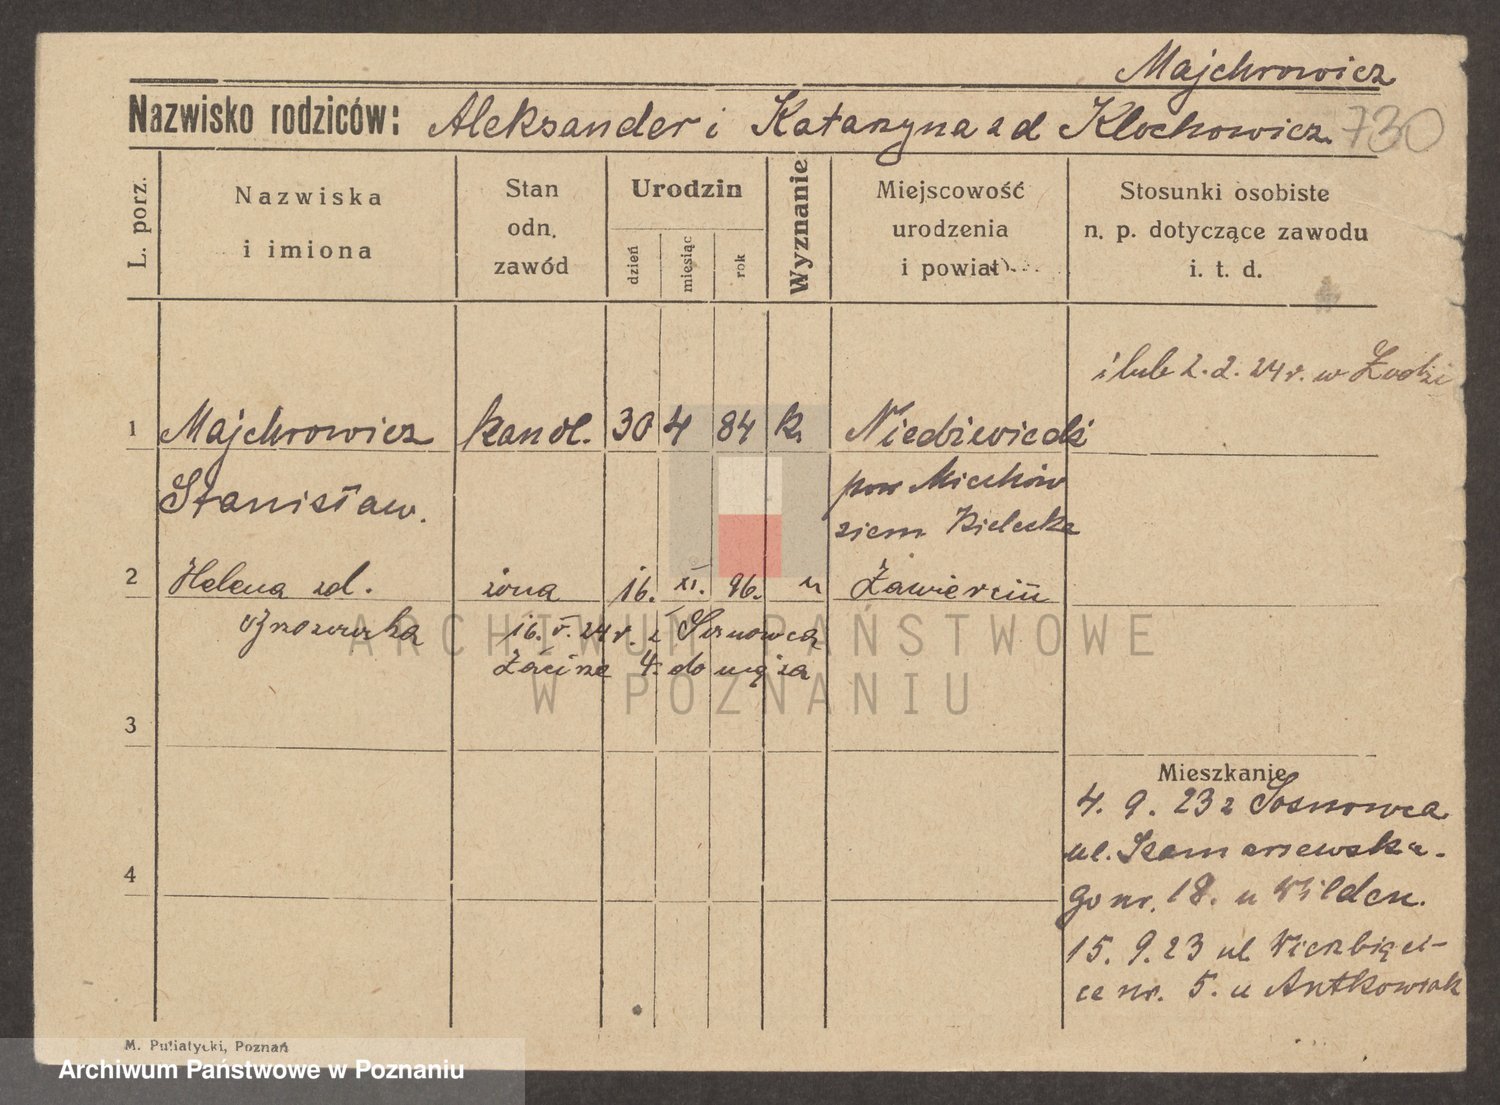 Majchrowicz
Nazwisko rodziców: Aleksander i Katarzyna z d Klochowicz. 730
L. porz.
Nazwiska
i imiona
Stan
odn.
zawód
Urodzin
dzień
miesiąc
rok
Wyznanie
Miejscowość
urodzenia
i powiat
Stosunki osobiste
n. p. dotyczące zawodu
i. t. d.
ślub 2. 2. 24 r. w Łodzi
1 Majchrowicz handl. 30 4 84 k. Niedźwiedź
Stanisław. pow Miechów
ziem Kielecka
2 Helena zd. żona 16. XI. 96. Zawierciu
16. V. 24 r. z Sosnowca
Zacisze 4. do męża
3
Mieszkanie
4. 9. 23 z Sosnowca
ul.
4
go nr. 18. u Wilden.
15. 9. 23 ul Wierzbięci-
ce nr. 5. u Antkowiak
ARCHIWUM PAŃSTWOWE
W POZNANIU
M. Putiatycki, Poznań
Archiwum Państwowe w Poznaniu